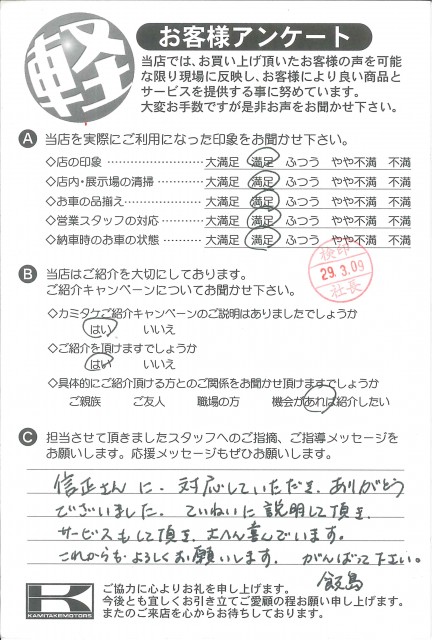 軽
お客様アンケート
当店では、お買い上げ頂いたお客様の声を可能
な限り現場に反映し、お客様により良い商品と
サービスを提供する事に努めています。
大変お手数ですが是非お声をお聞かせ下さい。
A 当店を実際にご利用になった印象をお聞かせ下さい。
◇店の印象 ………………… 大満足 満足 ふつう やや不満 不満
◇店内・展示場の清掃 ………… 大満足 満足 ふつう やや不満 不満
◇お車の品揃え ……………… 大満足 満足 ふつう やや不満 不満
◇営業スタッフの対応 ………… 大満足 満足 ふつう やや不満 不満
◇納車時のお車の状態 ………… 大満足 満足 ふつう やや不満 不満
検印
29.3.09
社長
B 当店はご紹介を大切にしてあります。
ご紹介キャンペーンについてお聞かせ下さい。
◇カミタケご紹介キャンペーンのご説明はありましたでしょうか
はい いいえ
◇ご紹介を頂けますでしょうか
はい いいえ
◇具体的にご紹介頂ける方とのご関係をお聞かせ頂けますでしょうか
ご親族 ご友人 職場の方 機会があれば紹介したい
C 担当させて頂きましたスタッフへのご指摘、ご指導メッセージを
お願いします。応援メッセージもぜひお願いします。
信正さんに、対応していただき、ありがとう
ございました。ていねいに説明して頂き、
サービスもして頂き、大へん喜んでいます。
これからも、よろしくお願いします。がんばって下さい。
飯島
K
KAMITAKEMOTORS
ご協力に心よりお礼を申し上げます。
今後とも宜しくお引き立てご愛顧の程お願い申し上げます。
またのご来店を心からお待ちしております。